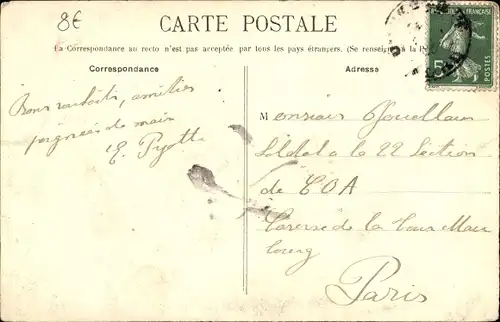 8€
CARTE POSTALE
La Correspondance au recto n'est pas acceptée par tous les pays étrangers. (Se renseigner à la
Correspondance
Adresse
Bons souhaits, amitiés
poignées de main
E. Pyott
Monsieur
Soldat a la 22 Section
de COA
Caserne de la Tour Mau
bourg
Paris